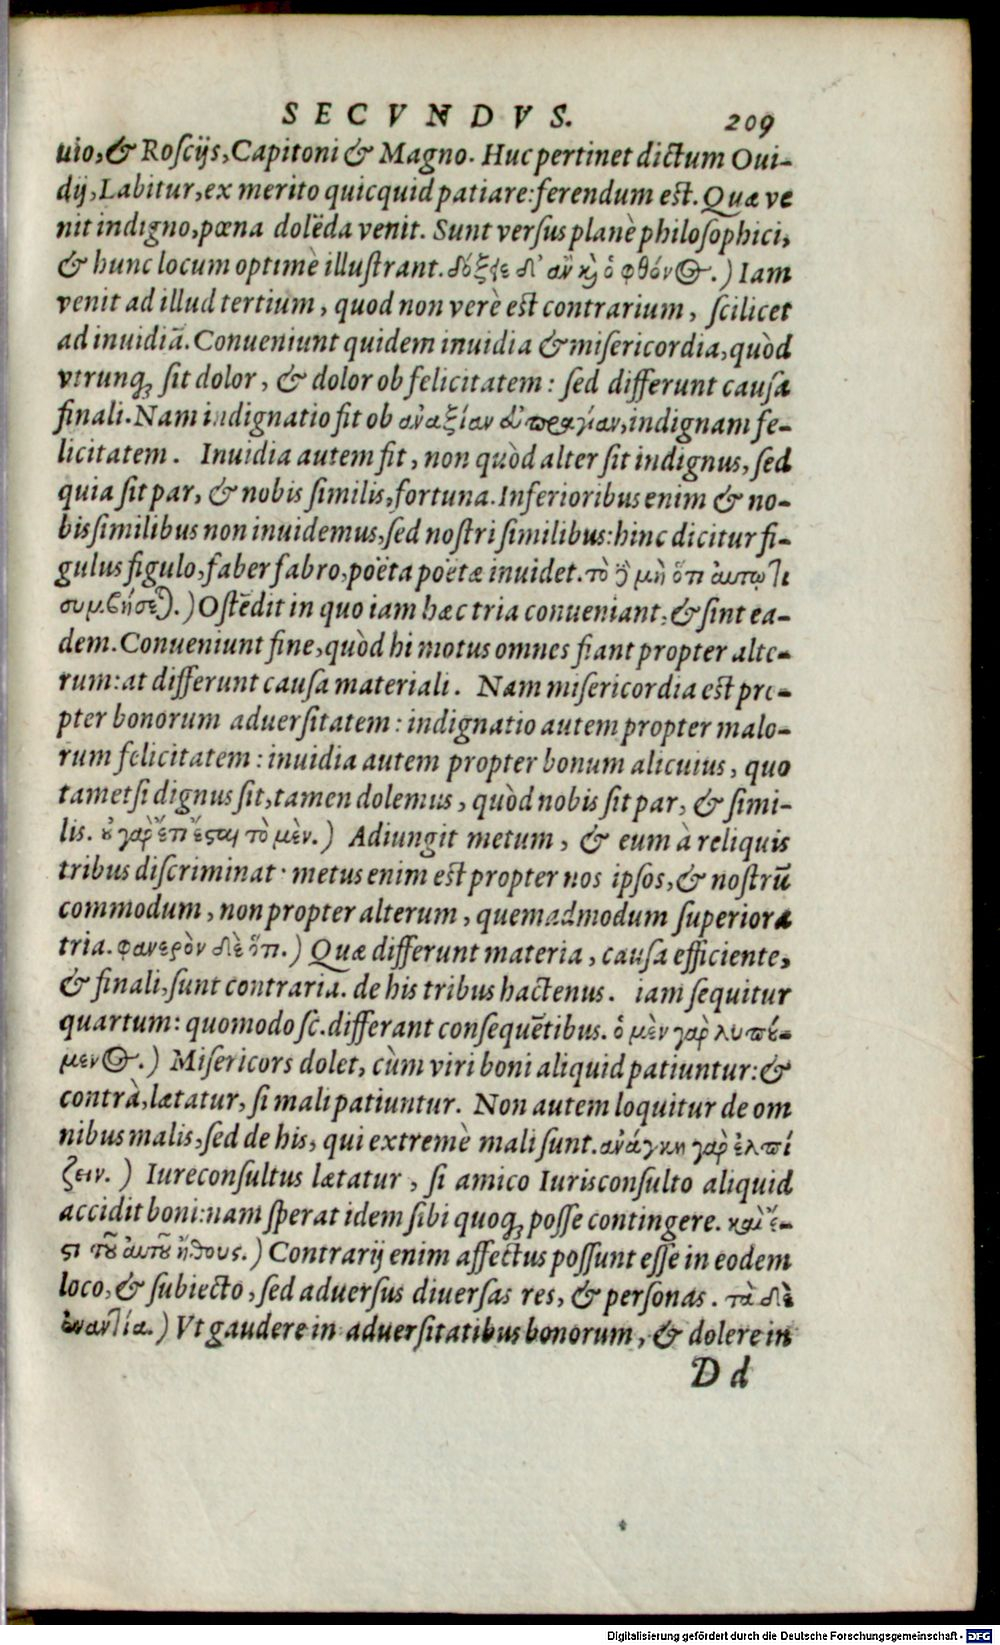 SECVNDVS. 209
uio, & Roſcijs, Capitoni & Magno. Huc pertinet dictum Oui-
dij, Labitur, ex merito quicquid patiare: ferendum eſt. Quæ ve
nit indigno, pœna dolēda venit. Sunt verſus planè philoſophici,
& hunc locum optimè illuſtrant. δόξειε δ' ἂν καὶ ὁ φθόνος.) Iam
venit ad illud tertium, quod non verè eſt contrarium, ſcilicet
ad inuidiā. Conueniunt quidem inuidia & miſericordia, quòd
vtrunq; ſit dolor, & dolor ob felicitatem: ſed differunt cauſa
finali. Nam indignatio fit ob ἀναξίαν εὐπραγίαν, indignam fe-
licitatem. Inuidia autem fit, non quòd alter ſit indignus, ſed
quia ſit par, & nobis ſimilis, fortuna. Inferioribus enim & no-
bis ſimilibus non inuidemus, ſed noſtri ſimilibus: hinc dicitur fi-
gulus figulo, faber fabro, poëta poëtæ inuidet. τὸ δὲ μὴ ὅτι αὐτῷ τι
συμβήσεται.) Oſtēdit in quo iam hæc tria conueniant, & ſint ea-
dem. Conueniunt fine, quòd hi motus omnes fiant propter alte-
rum: at differunt cauſa materiali. Nam miſericordia eſt pro-
pter bonorum aduerſitatem: indignatio autem propter malo-
rum felicitatem: inuidia autem propter bonum alicuius, quo
tametſi dignus ſit, tamen dolemus, quòd nobis ſit par, & ſimi-
lis. οὐ γὰρ ἔτι ἔσται τὸ μὲν.) Adiungit metum, & eum à reliquis
tribus diſcriminat: metus enim eſt propter nos ipſos, & noſtrū
commodum, non propter alterum, quemadmodum ſuperiora
tria. φανερὸν δὲ ὅτι.) Quæ differunt materia, cauſa efficiente,
& finali, ſunt contraria. de his tribus hactenus. iam ſequitur
quartum: quomodo ſc. differant conſequētibus. ὁ μὲν γὰρ λυπού-
μενος.) Miſericors dolet, cùm viri boni aliquid patiuntur: &
contrà, lætatur, ſi mali patiuntur. Non autem loquitur de om
nibus malis, ſed de his, qui extremè mali ſunt. ἀνάγκη γὰρ ἐλπί
ζειν.) Iureconſultus lætatur, ſi amico Iurisconſulto aliquid
accidit boni: nam ſperat idem ſibi quoq; poſſe contingere. καὶ ἔ-
στι τοῦ αὐτοῦ ἤθους.) Contrarij enim affectus poſſunt eſſe in eodem
loco, & ſubiecto, ſed aduerſus diuerſas res, & perſonas. τὰ δὲ
ἐναντία.) Vt gaudere in aduerſitatibus bonorum, & dolere in
D d
Digitalisierung gefördert durch die Deutsche Forschungsgemeinschaft - DFG